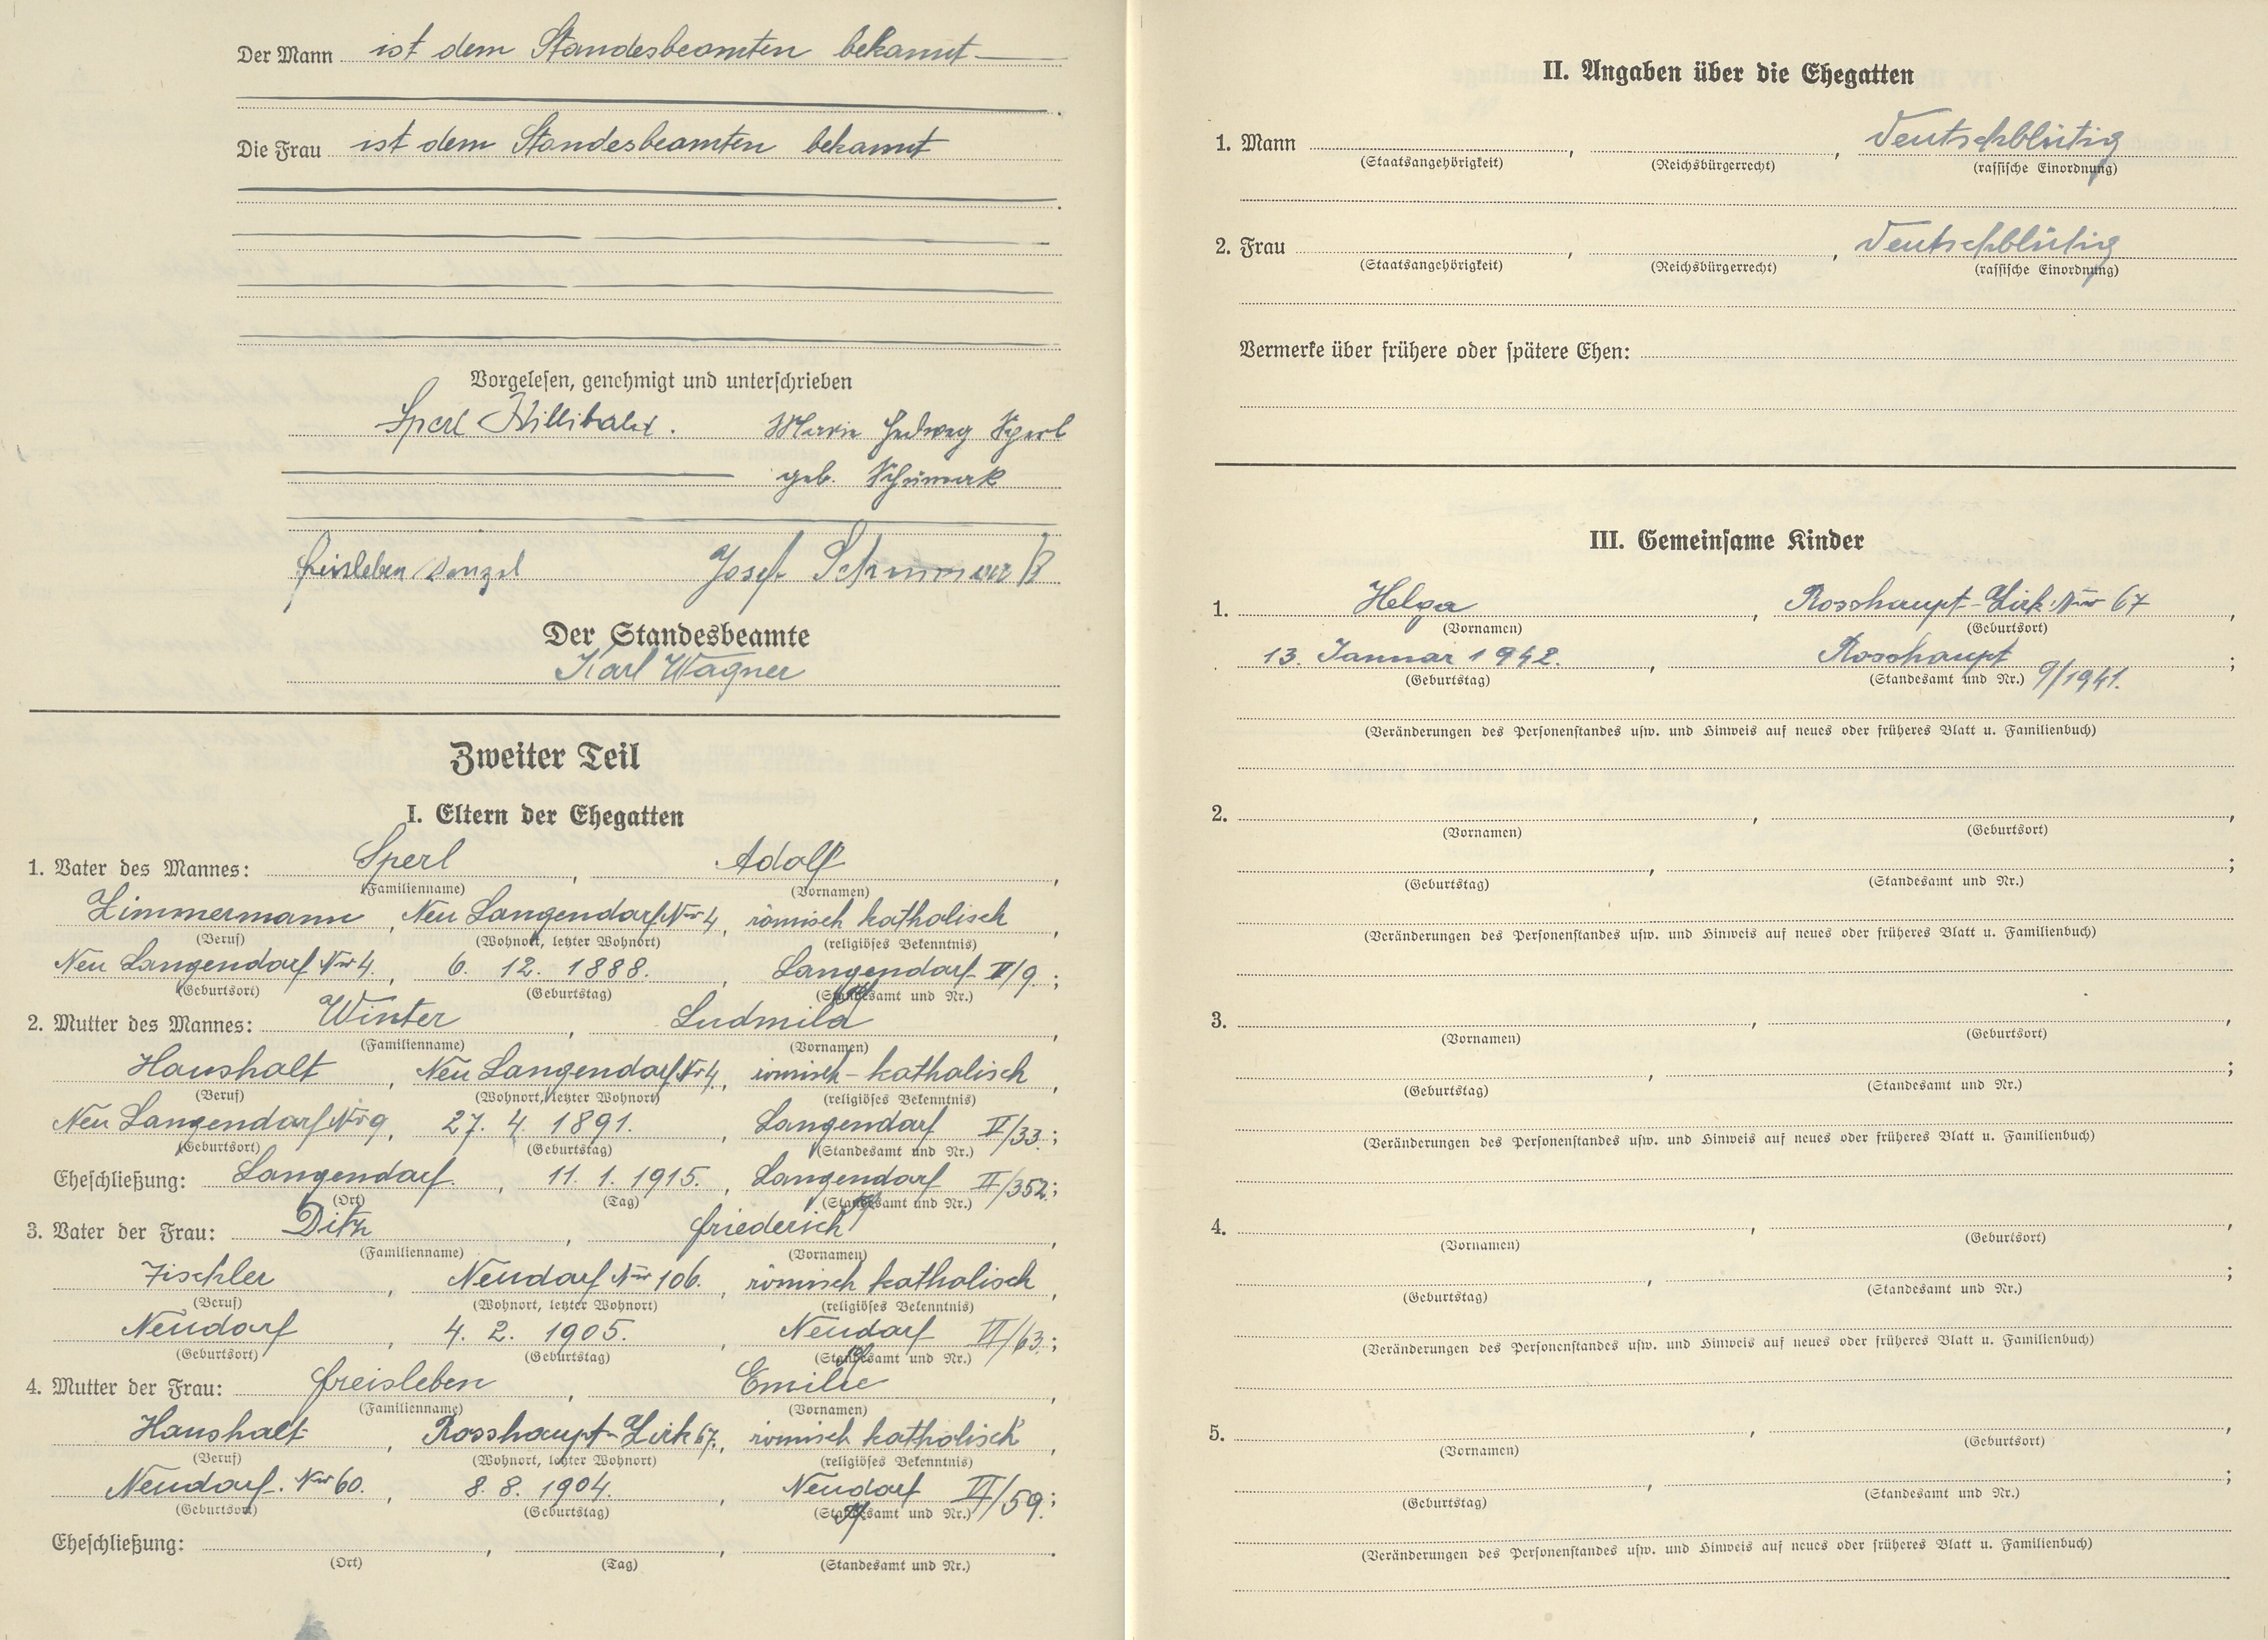 Der Mann ist dem Standesbeamten bekannt
Die Frau ist dem Standesbeamten bekannt
Vorgelesen, genehmigt und unterschrieben
Sperl Willibald. Marie Hedwig Sperl
geb. Schimerk
Freisleben Wenzel Josef
Der Standesbeamte
Karl Wagner
Zweiter Teil
I. Eltern der Ehegatten
1. Vater des Mannes: Sperl, Adolf,
(Familienname) (Vornamen)
Zimmermann, Neu Langendorf Nr 4, römisch katholisch,
(Beruf) (Wohnort, letzter Wohnort) (religiöses Bekenntnis)
Neu Langendorf Nr 4., 6. 12. 1888., Langendorf V/9;
(Geburtsort) (Geburtstag) (Standesamt und Nr.)
2. Mutter des Mannes: Winter, Ludmila,
(Familienname) (Vornamen)
Haushalt, Neu Langendorf Nr 4, römisch-katholisch,
(Beruf) (Wohnort, letzter Wohnort) (religiöses Bekenntnis)
Neu Langendorf Nr 9, 27. 4. 1891., Langendorf V/33.;
(Geburtsort) (Geburtstag) (Standesamt und Nr.)
Eheschließung: Langendorf., 11. 1. 1915., Langendorf II/352;
(Ort) (Tag) (Standesamt und Nr.)
3. Vater der Frau: Ditz, Friederich,
(Familienname) (Vornamen)
Tischler, Neudorf Nr 106., römisch katholisch,
(Beruf) (Wohnort, letzter Wohnort) (religiöses Bekenntnis)
Neudorf, 4. 2. 1905., Neudorf VI/63.;
(Geburtsort) (Geburtstag) (Standesamt und Nr.)
4. Mutter der Frau: Freisleben, Emilie,
(Familienname) (Vornamen)
Haushalt, Rosshaupt-Zirk 67., römisch katholisch,
(Beruf) (Wohnort, letzter Wohnort) (religiöses Bekenntnis)
Neudorf. Nr 60., 8. 8. 1904., Neudorf VI/59.;
(Geburtsort) (Geburtstag) (Standesamt und Nr.)
Eheschließung: , , .
(Ort) (Tag) (Standesamt und Nr.)
II. Angaben über die Ehegatten
1. Mann , , Deutschblütig
(Staatsangehörigkeit) (Reichsbürgerrecht) (rassische Einordnung)
2. Frau , , Deutschblütig
(Staatsangehörigkeit) (Reichsbürgerrecht) (rassische Einordnung)
Vermerke über frühere oder spätere Ehen:
III. Gemeinsame Kinder
1. Helga, Rosshaupt-Zirk Nr 67,
(Vornamen) (Geburtsort)
13. Januar 1942., Rosshaupt 9/1941.;
(Geburtstag) (Standesamt und Nr.)
(Veränderungen des Personenstandes usw. und Hinweis auf neues oder früheres Blatt u. Familienbuch)
2. , ,
(Vornamen) (Geburtsort)
, ;
(Geburtstag) (Standesamt und Nr.)
(Veränderungen des Personenstandes usw. und Hinweis auf neues oder früheres Blatt u. Familienbuch)
3. , ,
(Vornamen) (Geburtsort)
, ;
(Geburtstag) (Standesamt und Nr.)
(Veränderungen des Personenstandes usw. und Hinweis auf neues oder früheres Blatt u. Familienbuch)
4. , ,
(Vornamen) (Geburtsort)
, ;
(Geburtstag) (Standesamt und Nr.)
(Veränderungen des Personenstandes usw. und Hinweis auf neues oder früheres Blatt u. Familienbuch)
5. , ,
(Vornamen) (Geburtsort)
, ;
(Geburtstag) (Standesamt und Nr.)
(Veränderungen des Personenstandes usw. und Hinweis auf neues oder früheres Blatt u. Familienbuch)